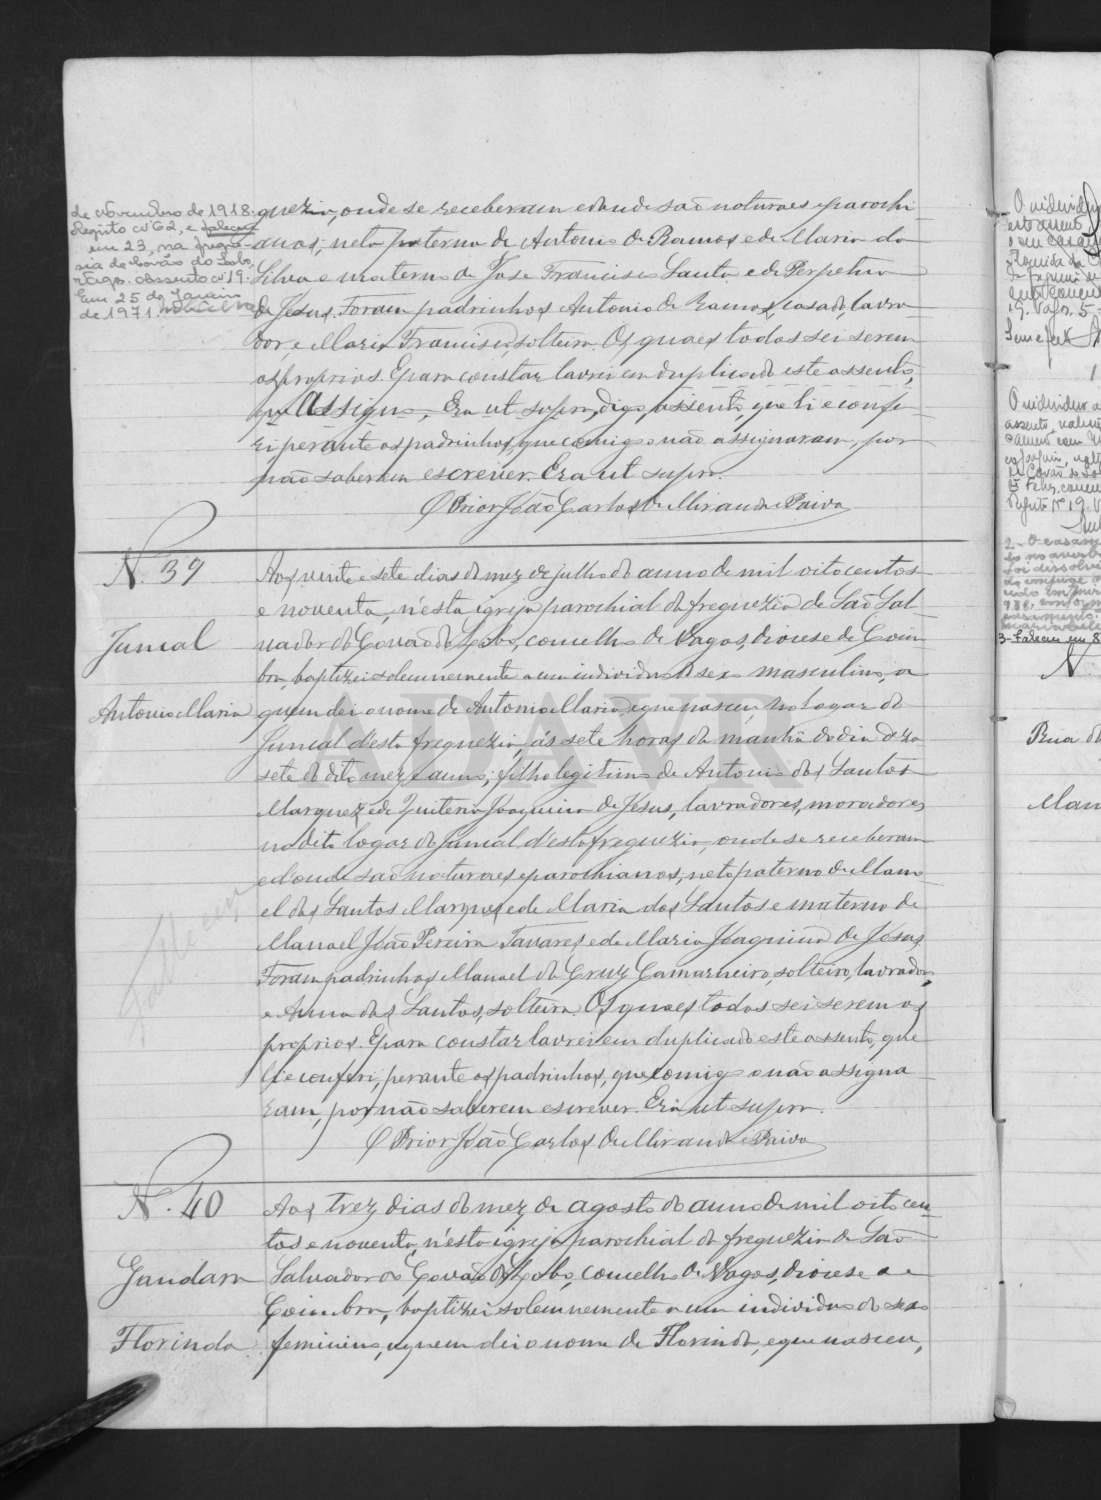 de Novembro de 1918.
Registo nº 62, e faleceu
em 23, na fregue-
sia de Covão do Lobo,
Vagos. assento nº 19.
Em 25 de Janeiro
de 1971.
guezia, onde se receberam e d'onde são naturaes e parochi-
anos; neta paterna de Antonio de Ramos e de Maria da
Silva e materna de José Francisco Santo e de Perpetua
de Jesus. Foram padrinhos Antonio de Ramos, casado, lavra-
dor, e Maria Francisca, solteira. Os quaes todos sei serem
os proprios. E para constar lavrei em duplicado este assento,
que assigno, Era ut supra, digo, assento, que li e confe-
ri perante os padrinhos, que comigo não assignaram, por
não saberem escrever. Era ut supra.
O Prior João Carlos de Miranda e Paiva
N. 39
Juncal
Antonio Maria
Aos vinte e sete dias do mez de julho do anno de mil oitocentos
e noventa, n'esta igreja parochial da freguezia de São Sal-
vador do Covão do Lobo, concelho de Vagos, diocese de Coim-
bra, baptizei solemnemente a um individuo do sexo masculino, a
quem dei o nome de Antonio Maria, e que nasceu no logar do
Juncal d'esta freguezia, ás sete horas da manhã do dia deza-
sete do dito mez e anno; filho legitimo de Antonio dos Santos
Marques e de Quiteria Joaquina de Jesus, lavradores, moradores
no dito logar do Juncal d'esta freguezia, onde se receberam
e d'onde são naturaes e parochianos, neto paterno de Mano-
el dos Santos Marques e de Maria dos Santos e materno de
Manoel João Pereira Tavares e de Maria Joaquina de Jesus.
Foram padrinhos Manoel da Cruz Camarneiro, solteiro, lavrador,
e Anna dos Santos, solteira. Os quaes todos sei serem os
proprios. E para constar lavrei em duplicado este assento, que
li e conferi, perante os padrinhos, que comigo não assigna-
ram, por não saberem escrever. Era ut supra.
O Prior João Carlos de Miranda e Paiva
Falleceu
N. 40
Gandara
Florinda
Aos trez dias do mez de agosto do anno de mil oitocen-
tos e noventa, n'esta igreja parochial da freguezia de São
Salvador do Covão do Lobo, concelho de Vagos, diocese de
Coimbra, baptizei solemnemente a um individuo do sexo
feminino, a quem dei o nome de Florinda, e que nasceu,
ADAVR
3- Faleceu em 8
N.
Rua do
Man